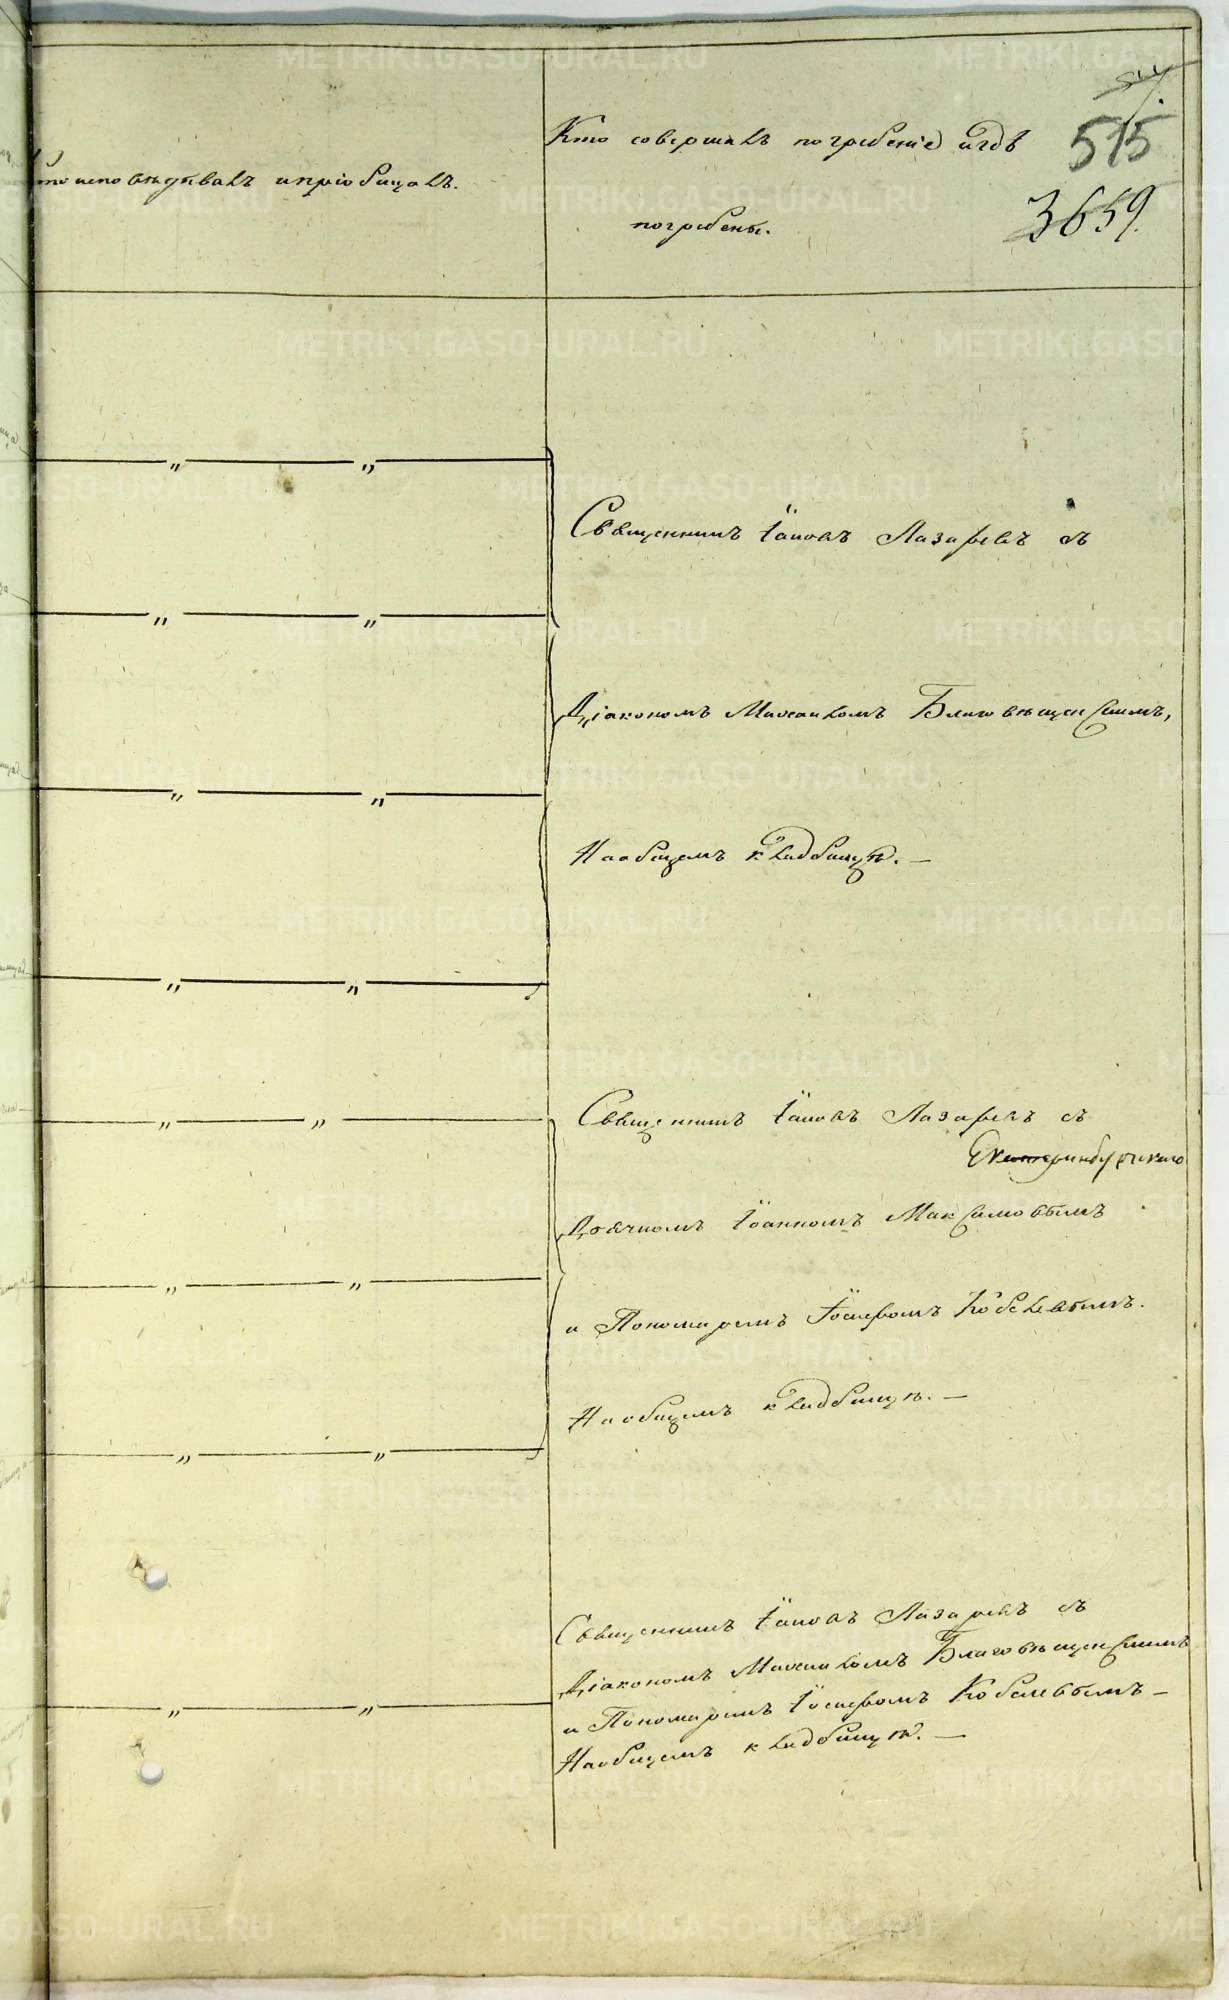 Кто исповѣдывалъ и пріобщалъ.
Кто совершалъ погребеніе и гдѣ
погребены.
515
3659.
Священникъ Іаковъ Лазаревъ съ
Діакономъ Михаиломъ Благовѣщенскимъ,
На общемъ кладбищѣ. —
Священникъ Іаковъ Лазаревъ съ
Екатеринбургскаго
Дьячкомъ Іоанномъ Максимовымъ
и Пономаремъ Іосифомъ Кобелевымъ.
На общемъ кладбищѣ. —
Священникъ Іаковъ Лазаревъ съ
Діакономъ Михаиломъ Благовѣщенскимъ
и Пономаремъ Іосифомъ Кобелевымъ —
На общемъ кладбищѣ. —
METRIKI.GASO-URAL.RU